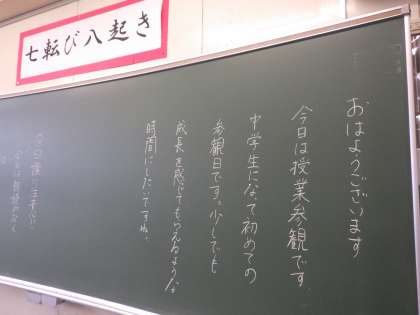 七転び八起き
おはようございます
今日は授業参観です。
中学生になって初めての
参観日です。少しでも
成長を感じてもらえるような
時間にしたいですね。